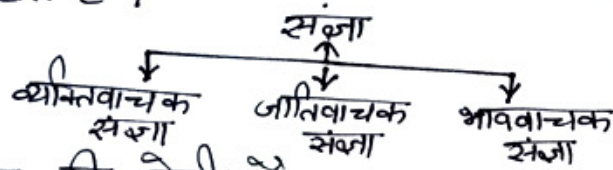 संज्ञा
व्यक्तिवाचक संज्ञा
जातिवाचक संज्ञा
भाववाचक संज्ञा